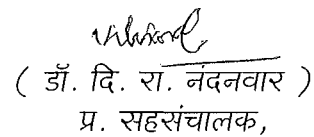 ( डॉ. दि. रा. नंदनवार )
प्र. सहसंचालक,